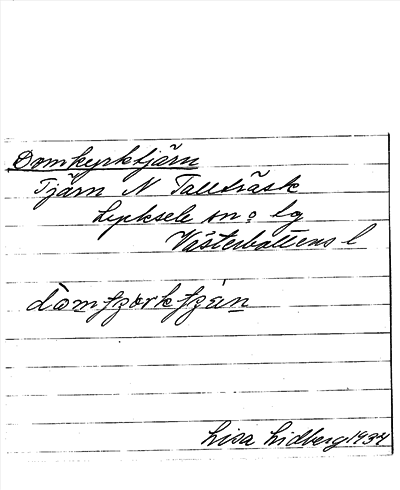 Domkyrktjärn
Tjärn N Tallträsk
Lycksele sn o lg
Västerbottens l
Lisa Lidberg 1934